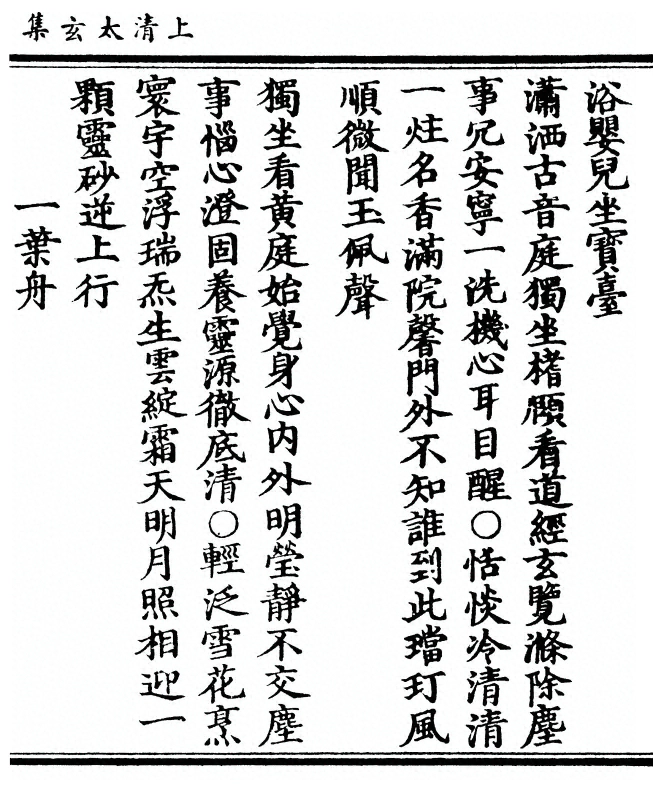 上清太玄集
浴嬰兒坐寶臺
瀟洒古音庭獨坐㮶顋看道經玄覽滌除塵
事冗安寧一洗機心耳目醒○恬惔冷清清
一炷名香滿院馨門外不知誰到此璫玎風
順微聞玉佩聲
獨坐看黃庭始覺身心內外明瑩靜不交塵
事惱心澄固養靈源徹底清○輕泛雪花烹
寰宇空浮瑞炁生雲綻霜天明月照相迎一
顆靈砂逆上行
一葉舟